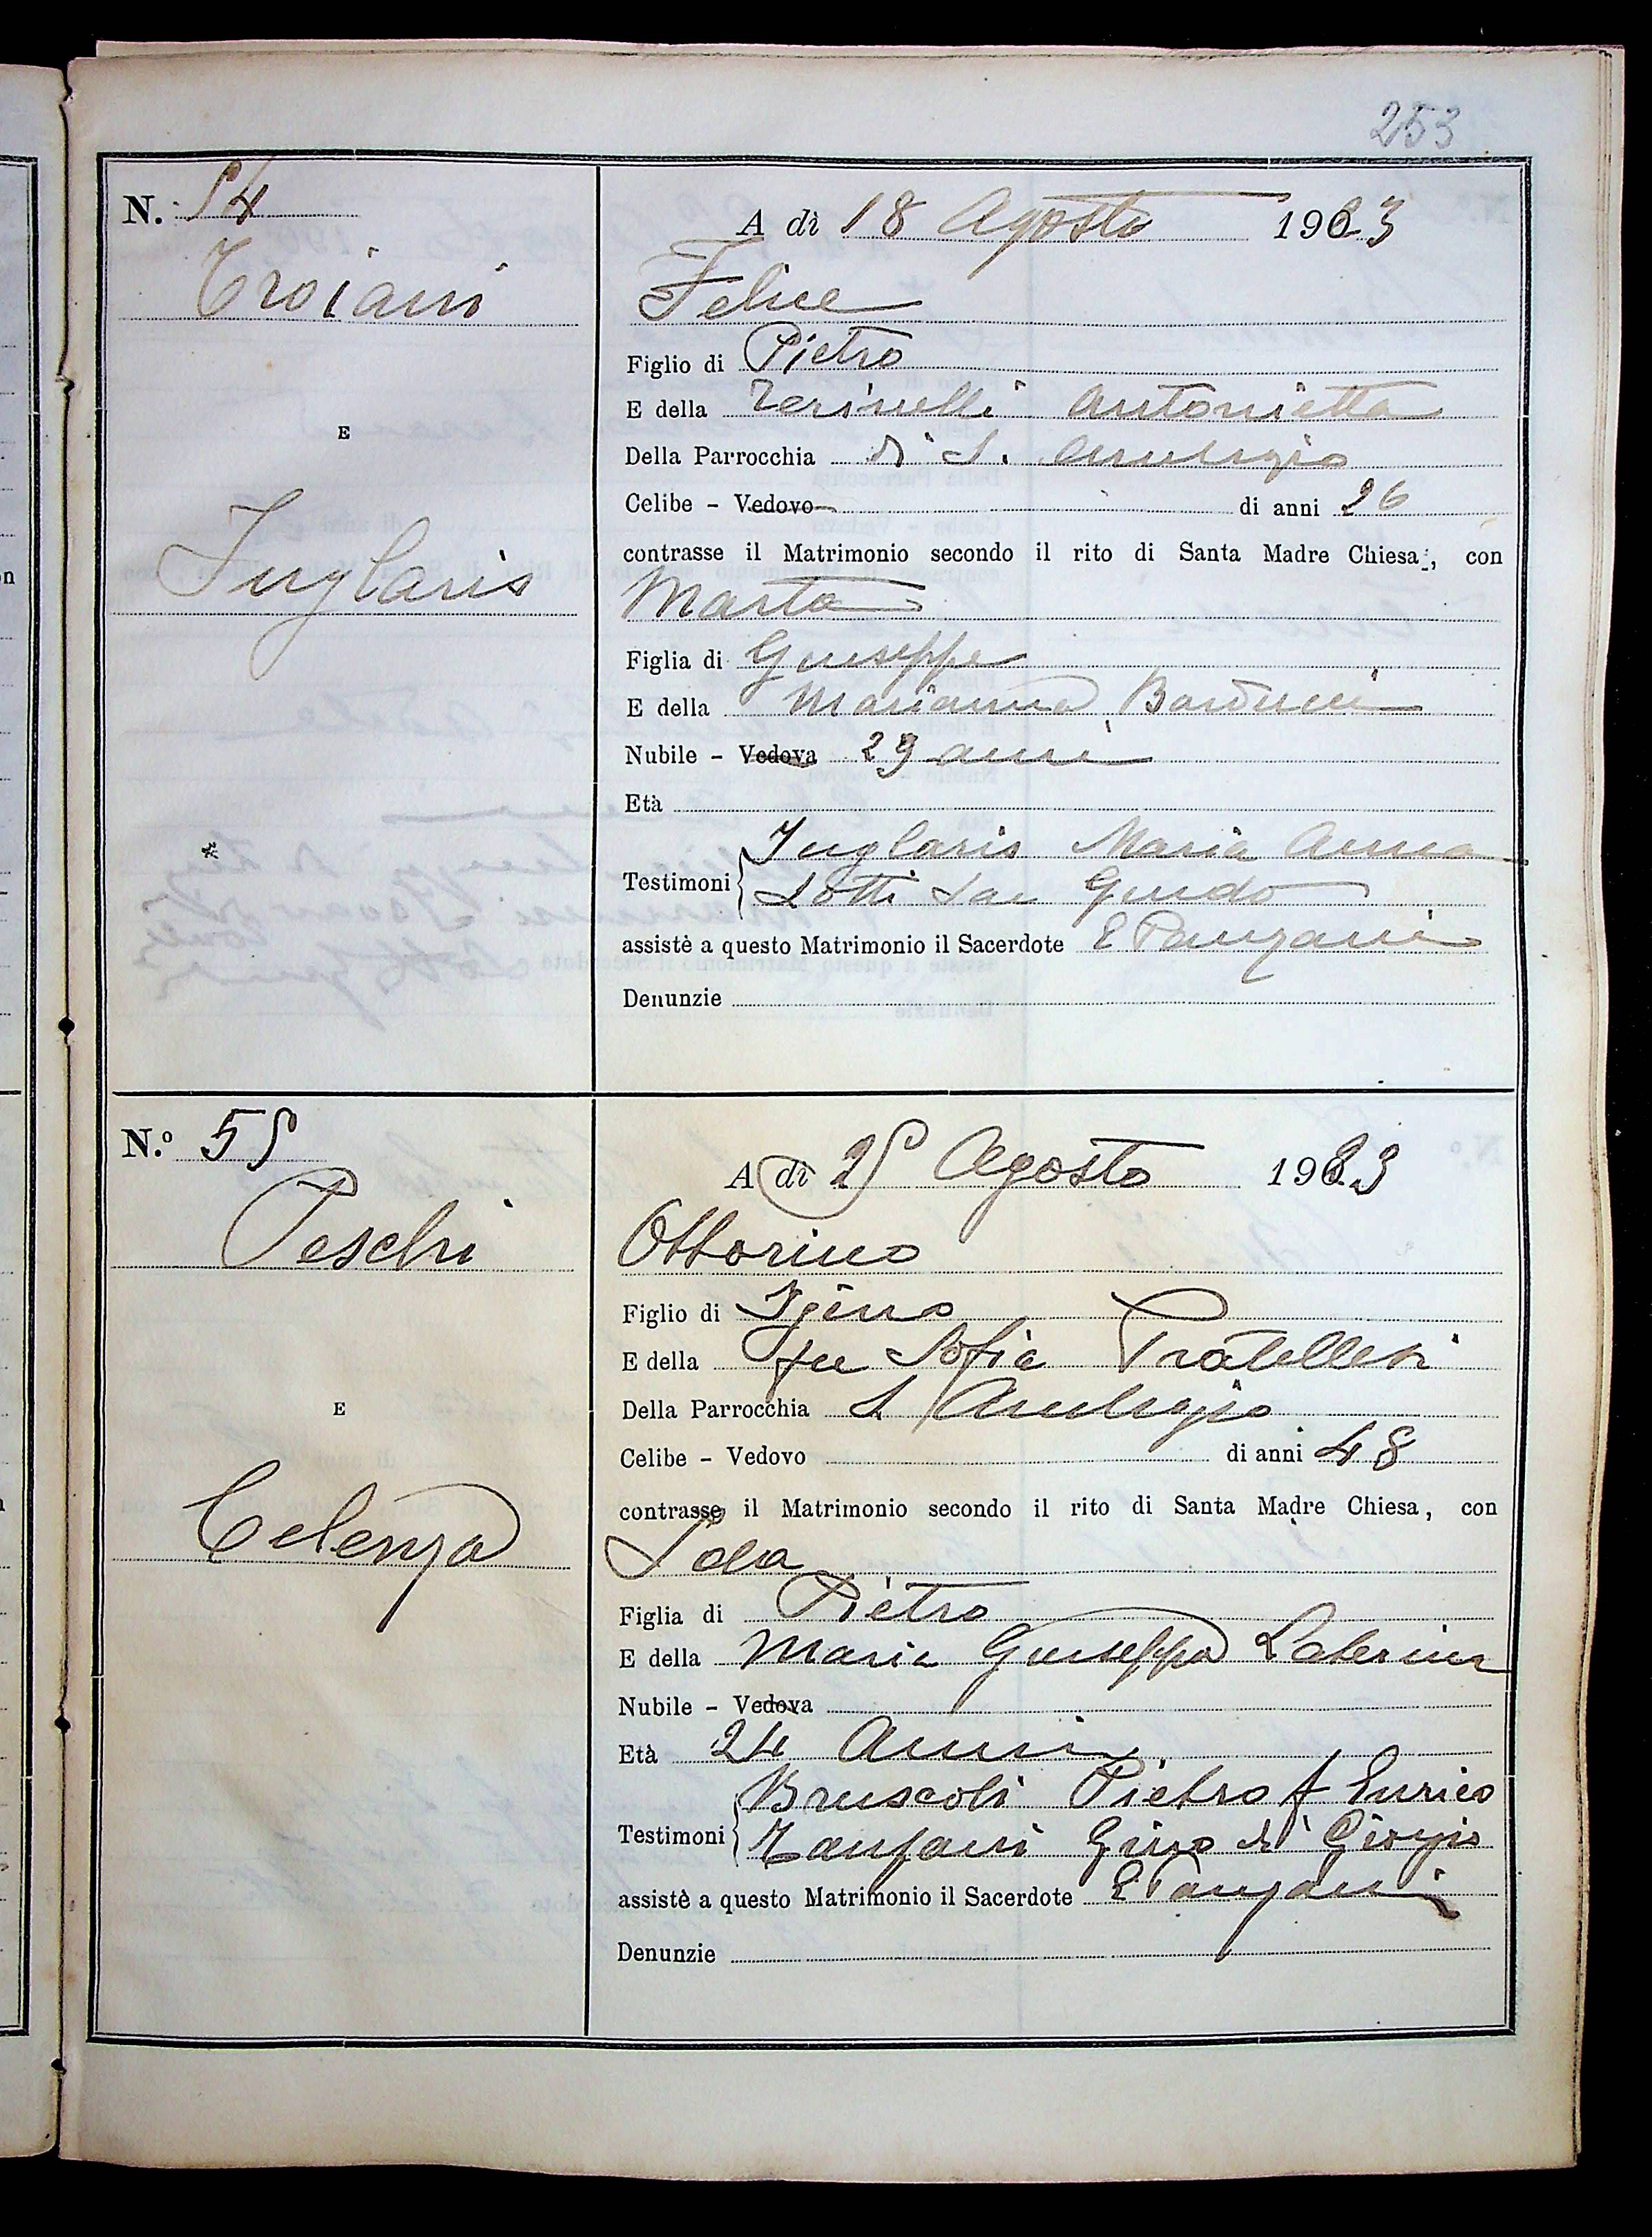 253
N. 54
A dì 18 Agosto 1923
Troiani
Felice
Figlio di Pietro
E della Zerinelli Antonietta
E
Della Parrocchia di S. Ambrogio
Celibe - Vedovo di anni 26
contrasse il Matrimonio secondo il rito di Santa Madre Chiesa, con
Inglaris
Marta
Figlia di Giuseppe
E della Marianna Barducci
Nubile - Vedova 29 anni
Età
Testimoni Inglaris Maria Anna
Lotti Guido
assistè a questo Matrimonio il Sacerdote E Panzani
Denunzie
N.º 55
A dì 25 Agosto 1923
Peschi
Ottorino
Figlio di Igino
E della fu Sofia Pratellesi
E
Della Parrocchia S Ambrogio
Celibe - Vedovo di anni 48
contrasse il Matrimonio secondo il rito di Santa Madre Chiesa, con
Celenza
Ida
Figlia di Pietro
E della Maria Giuseppa
Nubile - Vedova
Età 24 Anni
Testimoni Bruscoli Pietro f Enrico
Gino di Giorgio
assistè a questo Matrimonio il Sacerdote E Panzani
Denunzie